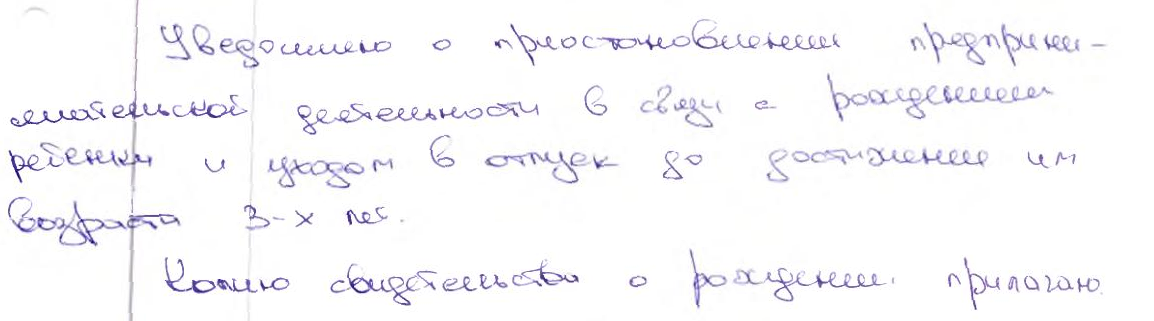 Уведомляю о приостановлении предприни-
мательской деятельности в связи с рождением
ребенка и уходом в отпуск до достижения им
возраста 3-х лет.
Копию свидетельства о рождении прилагаю.